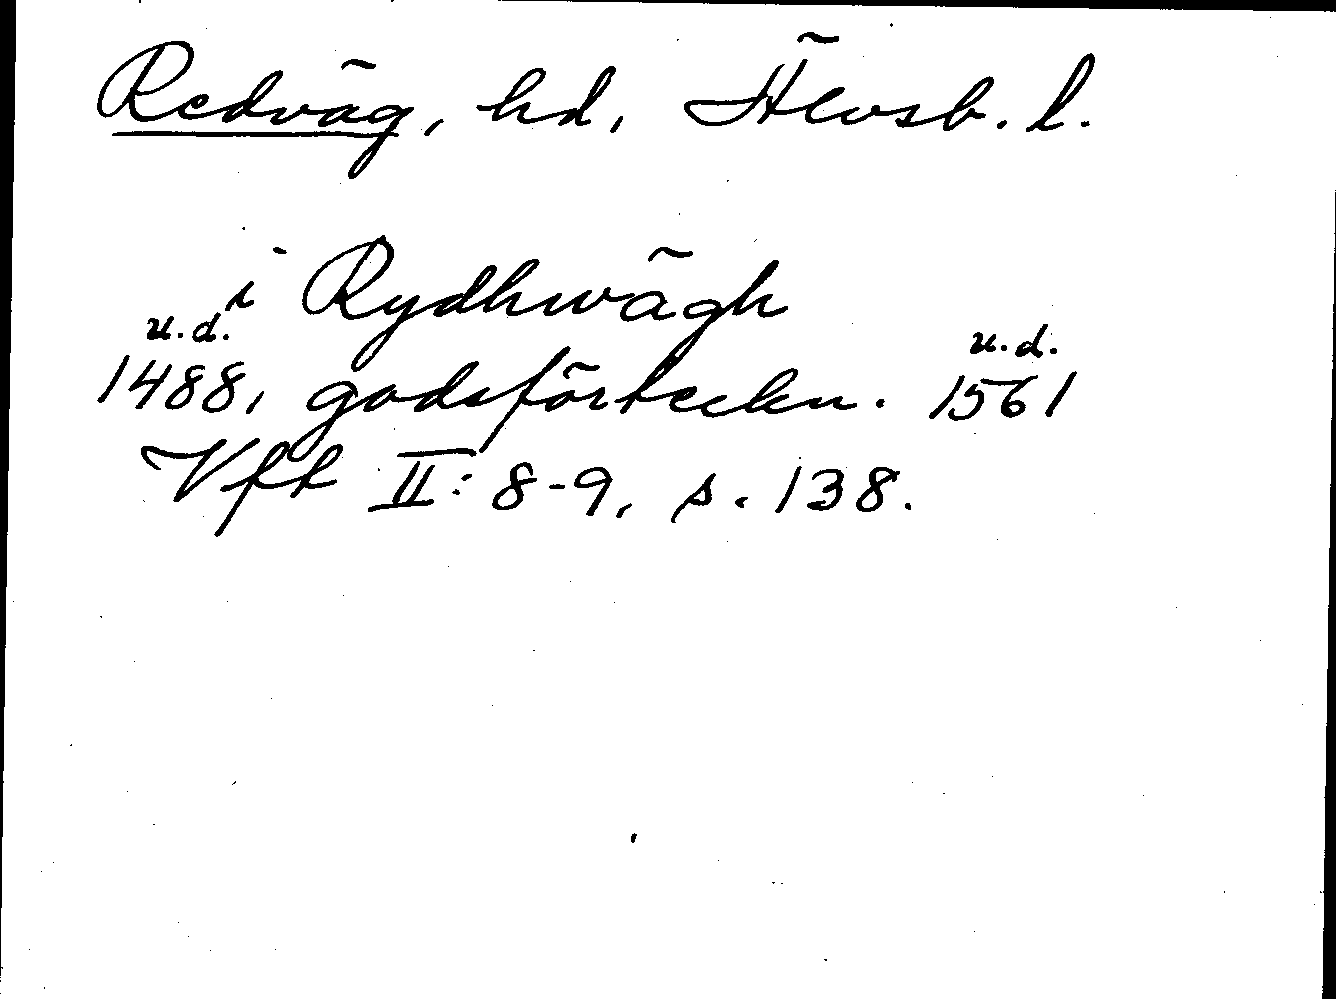 Redväg, hd, Älvsb. l.
i Rydhwägh
u.d. u.d.
1488, godsförteckn. 1561
Vft II: 8-9, s. 138.